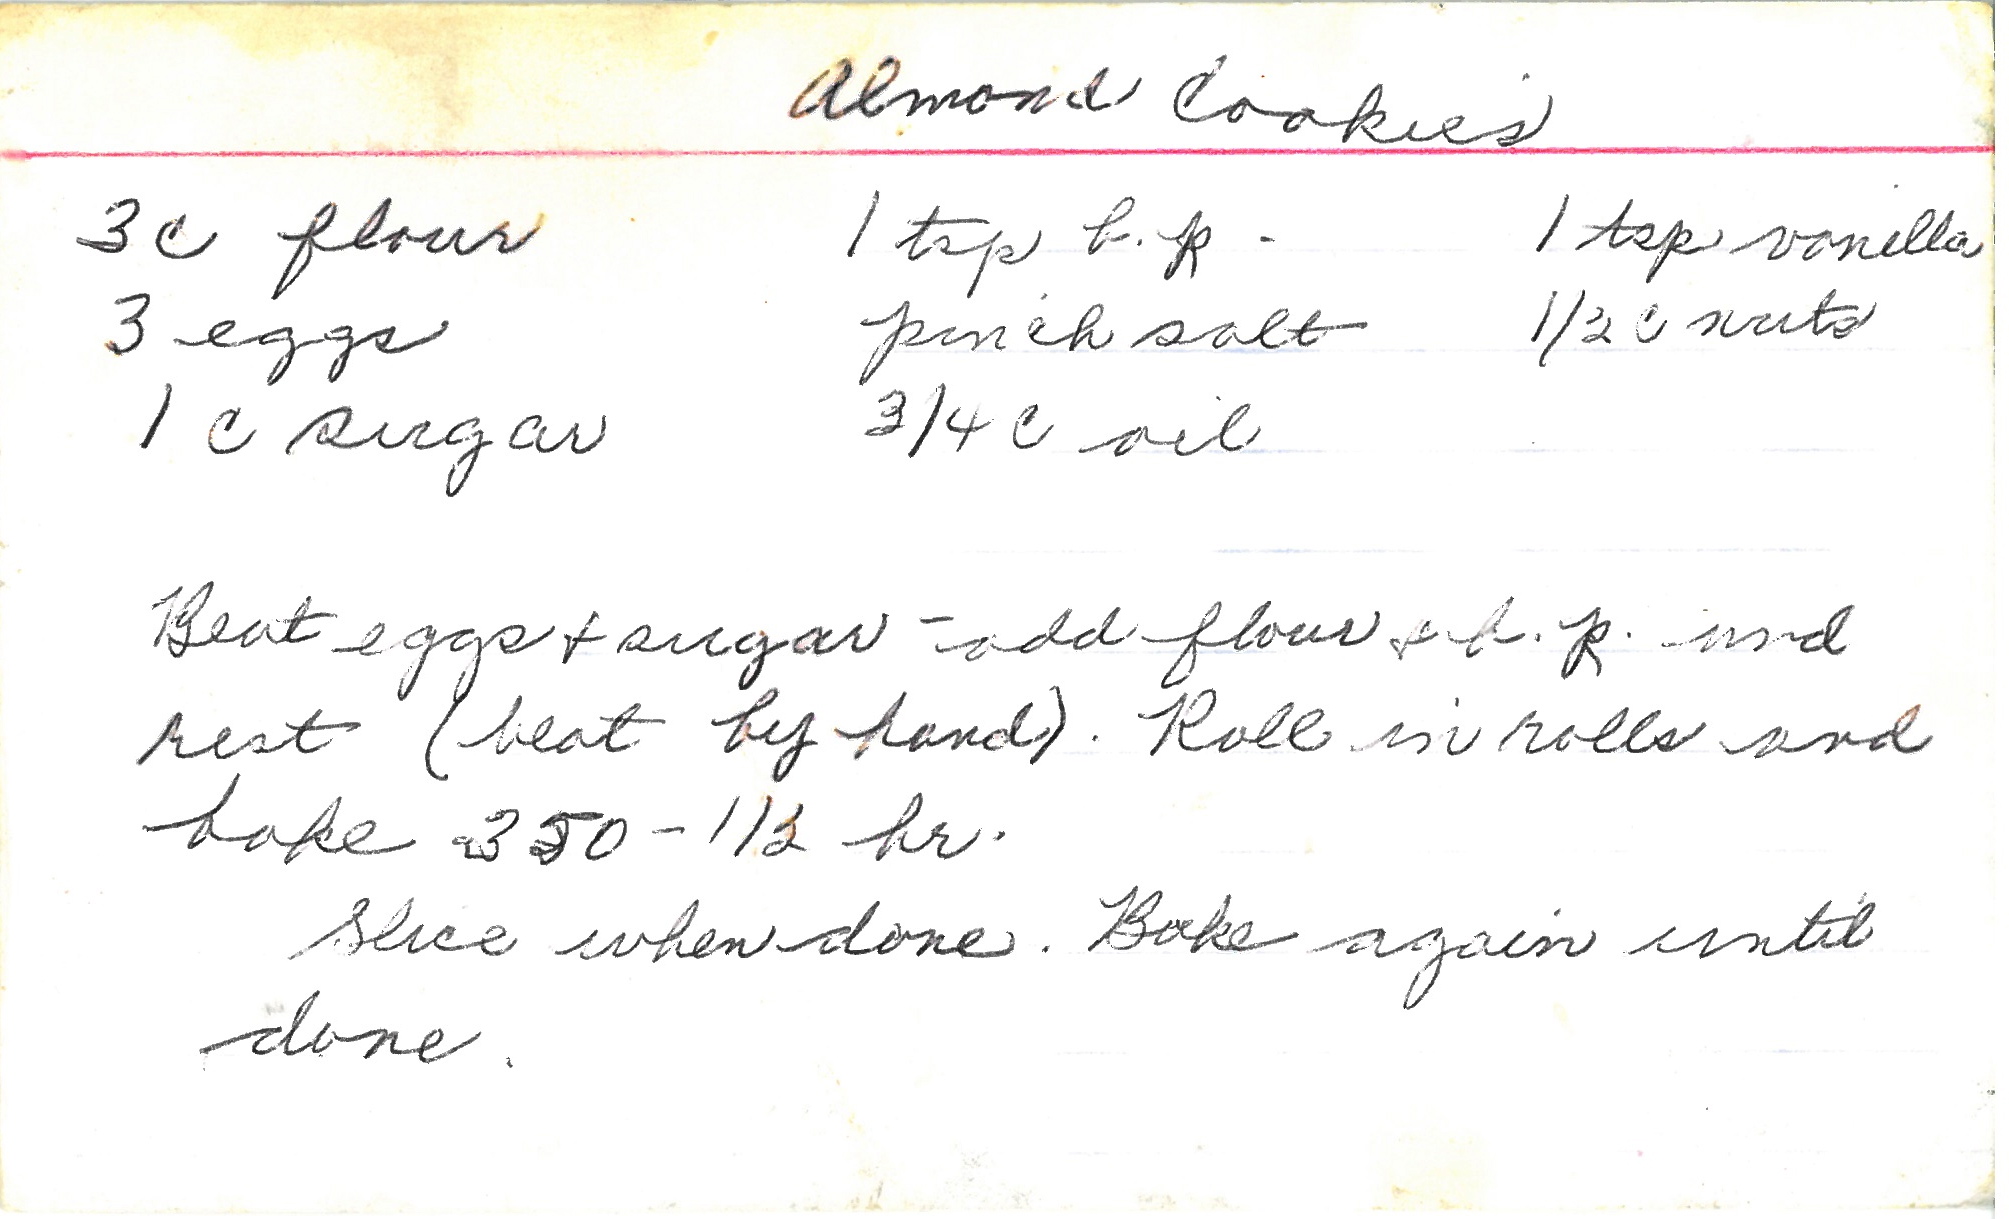 Almond Cookies
3 c flour 1 tsp b.p. 1 tsp vanilla
3 eggs pinch salt 1/2 c nuts
1 c sugar 3/4 c oil
Beat eggs + sugar - add flour & b.p. and
rest (beat by hand). Roll in rolls and
bake 350 - 1/2 hr.
Slice when done. Bake again until
done.